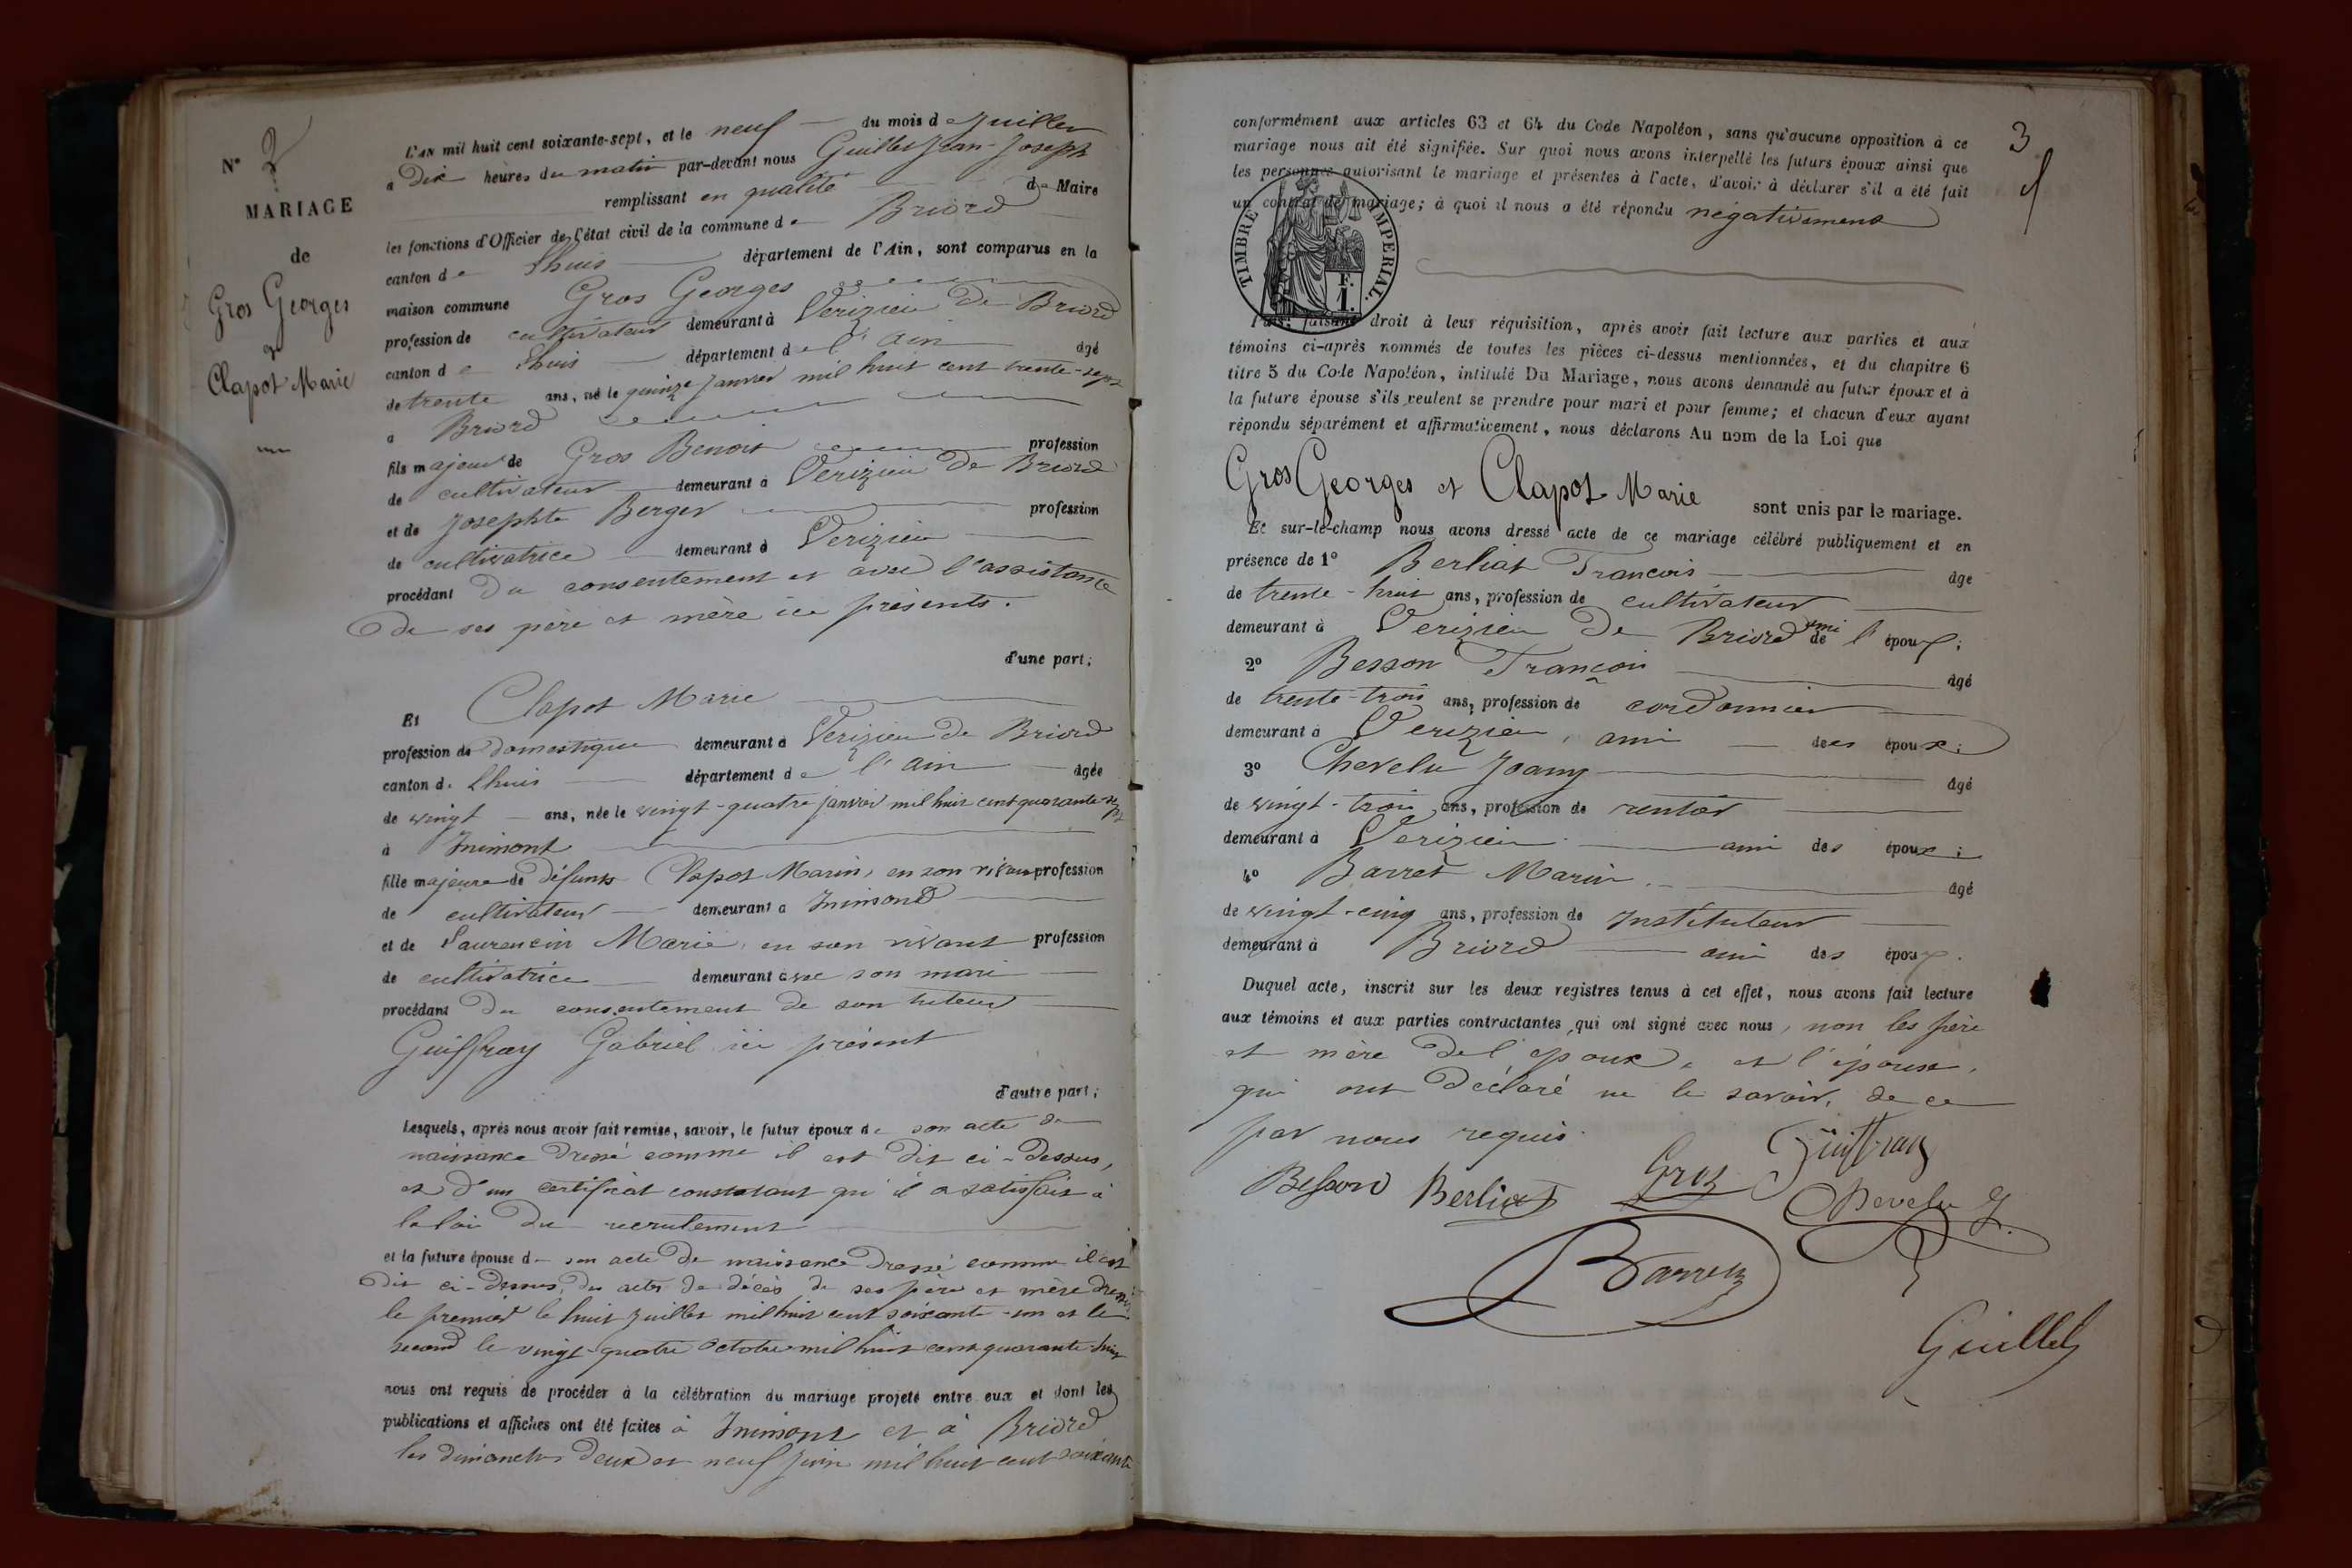 N° 2
MARIAGE
de
Gros Georges
et
Clapot Marie
L'AN mil huit cent soixante-sept, et le neuf du mois de Juillet
à Dix heures du matin par-devant nous Guillet Jean-Joseph
remplissant en qualité de Maire
les fonctions d'Officier de l'état civil de la commune de Briord
canton de Lhuis département de l'Ain, sont comparus en la
maison commune Gros Georges
profession de cultivateur demeurant à Verizieu de Briord
canton de Lhuis département de l'Ain âgé
de trente ans, né le quinze Janvier mil huit cent trente-sept
à Briord
fils majeur de Gros Benoit profession
de cultivateur demeurant à Verizieu de Briord
et de Josephte Berger profession
de cultivatrice demeurant à Verizieu
procédant du consentement et avec l'assistance
de ses père et mère ici présents.
d'une part;
Et Clapot Marie
profession de domestique demeurant à Verizieu de Briord
canton de Lhuis département de l'Ain âgée
de vingt ans, née le vingt-quatre janvier mil huit cent quarante-sept
à Innimont
fille majeure de défunts Clapot Marin, en son vivant profession
de cultivateur demeurant à Innimond
et de Laurencin Marie, en son vivant profession
de cultivatrice demeurant avec son mari
procédant du consentement de son tuteur
Guiffray Gabriel ici présent
d'autre part;
Lesquels, après nous avoir fait remise, savoir, le futur époux de son acte de
naissance dressé comme il est dit ci-dessus,
et d'un certificat constatant qu'il a satisfait à
la loi du recrutement
et la future épouse de son acte de naissance dressé comme il est
dit ci-dessus, des actes de décès de ses père et mère dressés
le premier le huit juillet mil huit cent soixante-un et le
second le vingt-quatre octobre mil huit cent quarante-huit
nous ont requis de procéder à la célébration du mariage projeté entre eux et dont les
publications et affiches ont été faites à Innimont et à Briord
les dimanches deux et neuf juin mil huit cent soixante
3
conformément aux articles 63 et 64 du Code Napoléon, sans qu'aucune opposition à ce
mariage nous ait été signifiée. Sur quoi nous avons interpellé les futurs époux ainsi que
les personnes autorisant le mariage et présentes à l'acte, d'avoir à déclarer s'il a été fait
un contrat de mariage; à quoi il nous a été répondu négativement
TIMBRE IMPERIAL.
F. I.
Puis, faisant droit à leur réquisition, après avoir fait lecture aux parties et aux
témoins ci-après nommés de toutes les pièces ci-dessus mentionnées, et du chapitre 6
titre 5 du Code Napoléon, intitulé Du Mariage, nous avons demandé au futur époux et à
la future épouse s'ils veulent se prendre pour mari et pour femme; et chacun d'eux ayant
répondu séparément et affirmativement, nous déclarons Au nom de la Loi que
Gros Georges et Clapot Marie sont unis par le mariage.
Et sur-le-champ nous avons dressé acte de ce mariage célébré publiquement et en
présence de 1° Berliat Francois âgé
de trente-huit ans, profession de cultivateur
demeurant à Verizieu de Briord ami de l'époux;
2° Besson François âgé
de trente-trois ans, profession de cordonnier
demeurant à Verizieu, ami des époux;
3° Chevelu Joany âgé
de vingt-trois ans, profession de rentier
demeurant à Verizieu ami des époux;
4° Barret Marin âgé
de vingt-cinq ans, profession de Instituteur
demeurant à Briord ami des époux.
Duquel acte, inscrit sur les deux registres tenus à cet effet, nous avons fait lecture
aux témoins et aux parties contractantes, qui ont signé avec nous, non les père
et mère de l'époux, et l'épouse,
qui ont déclaré ne le savoir, de ce
par nous requis.
Besson Berliat Gros Guiffray
Chevelu J.
Barret
Guillet